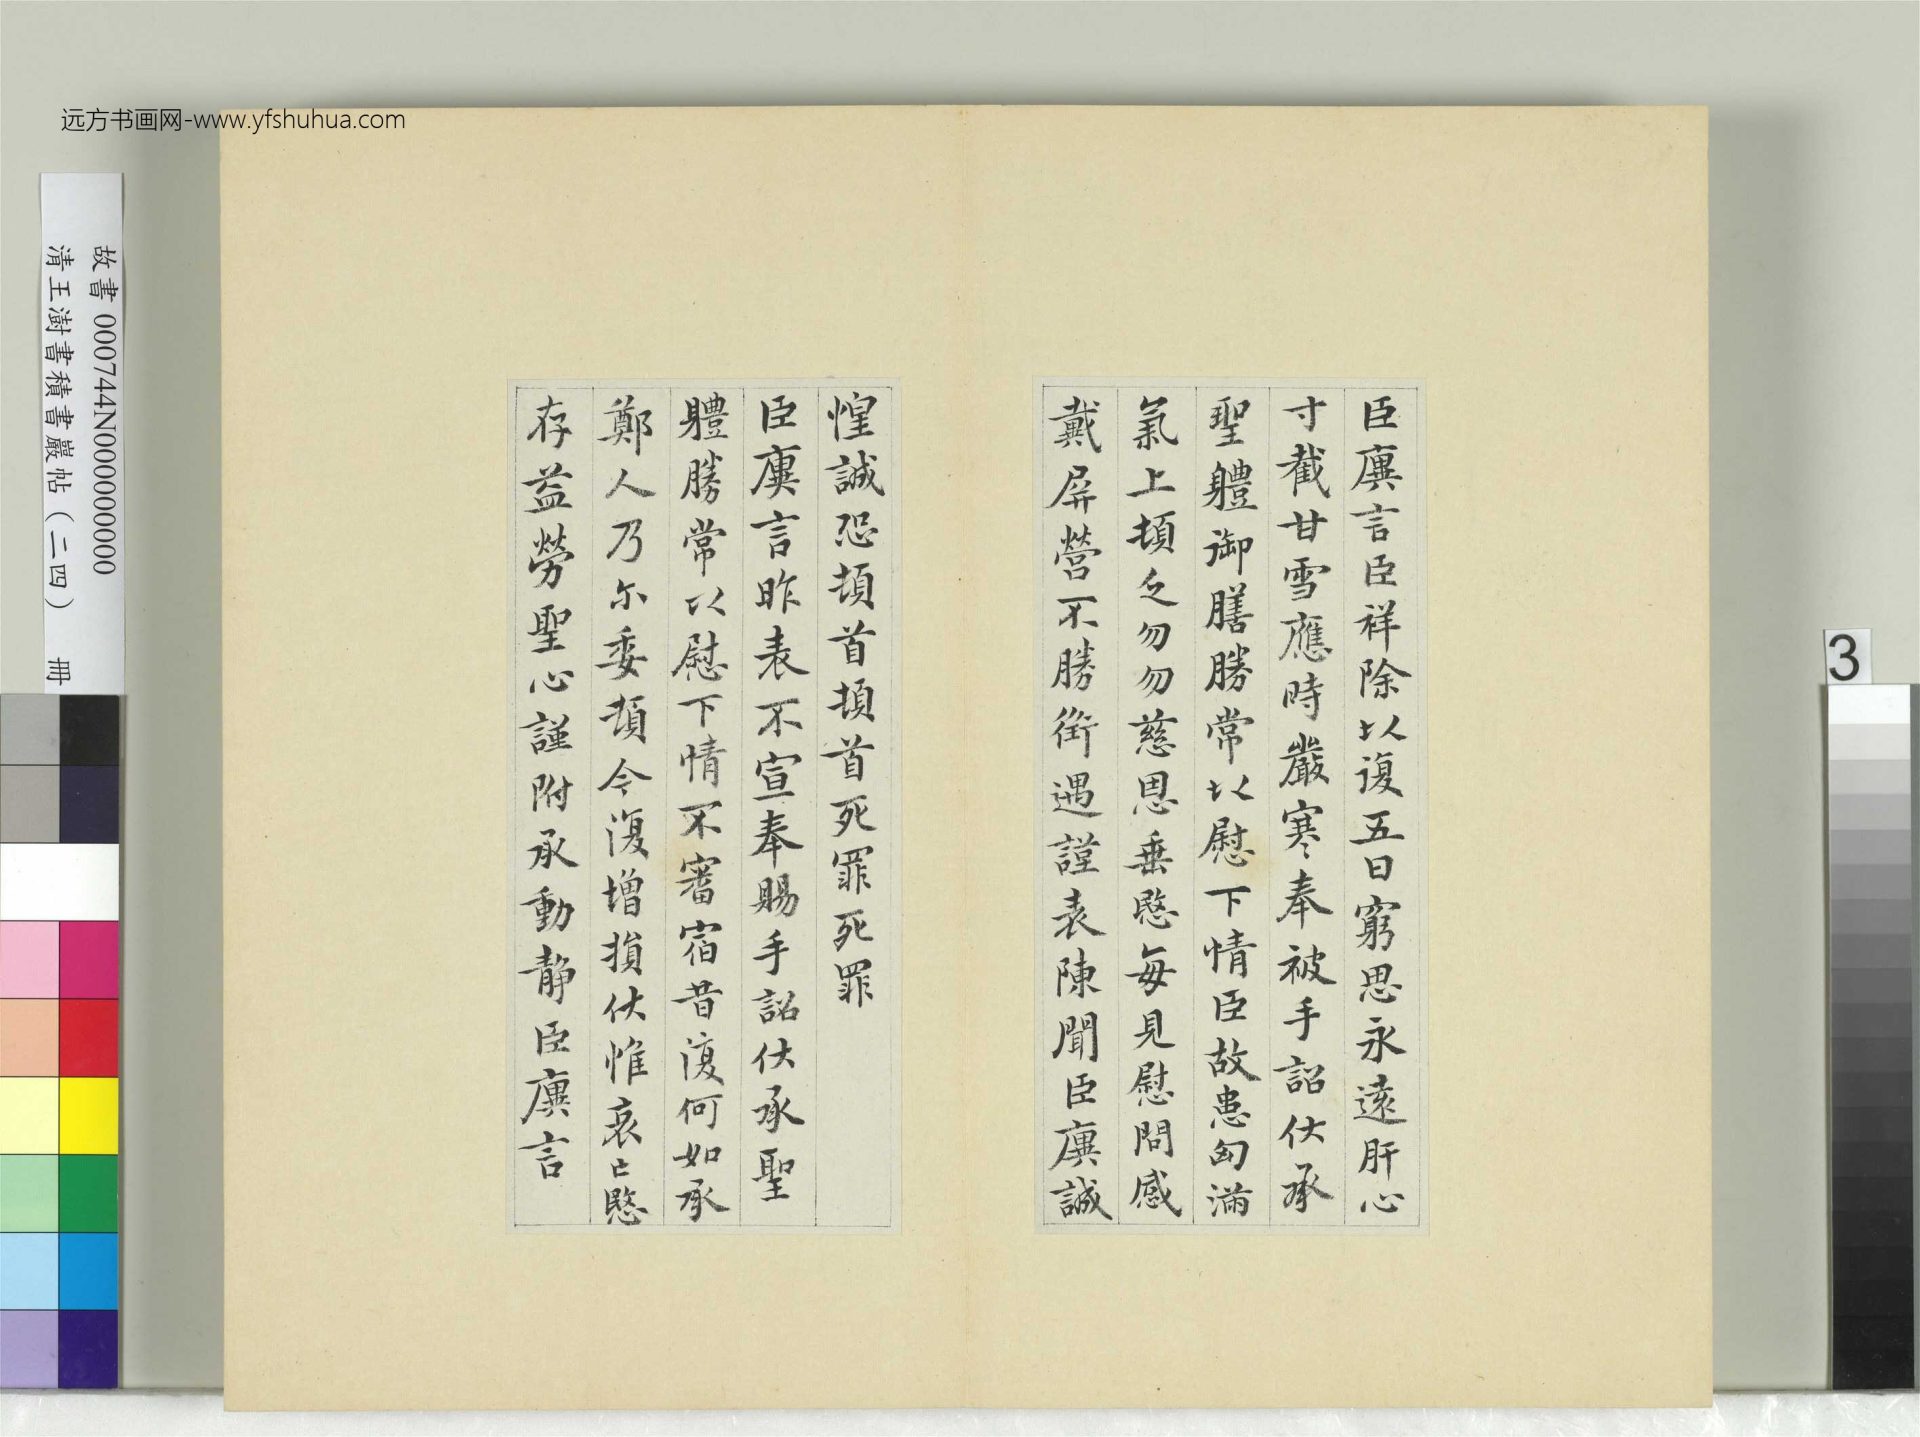 远方书画网-www.yfshuhua.com
故書 000744N000000000
清王澍書積書巖帖（二四） 冊
3
臣廙言臣祥除以復五日窮思永遠肝心
寸截甘雪應時嚴寒奉被手詔伏承
聖體御膳勝常以慰下情臣故患匈滿
氣上頓乏勿勿慈恩垂愍每見慰問感
戴屏營不勝銜遇謹表陳聞臣廙誠
惶誠恐頓首頓首死罪死罪
臣廙言昨表不宣奉賜手詔伏承聖
體勝常以慰下情不審宿昔復何如承
鄭人乃尔委頓令復增損伏惟哀亡愍
存益勞聖心謹附承動静臣廙言